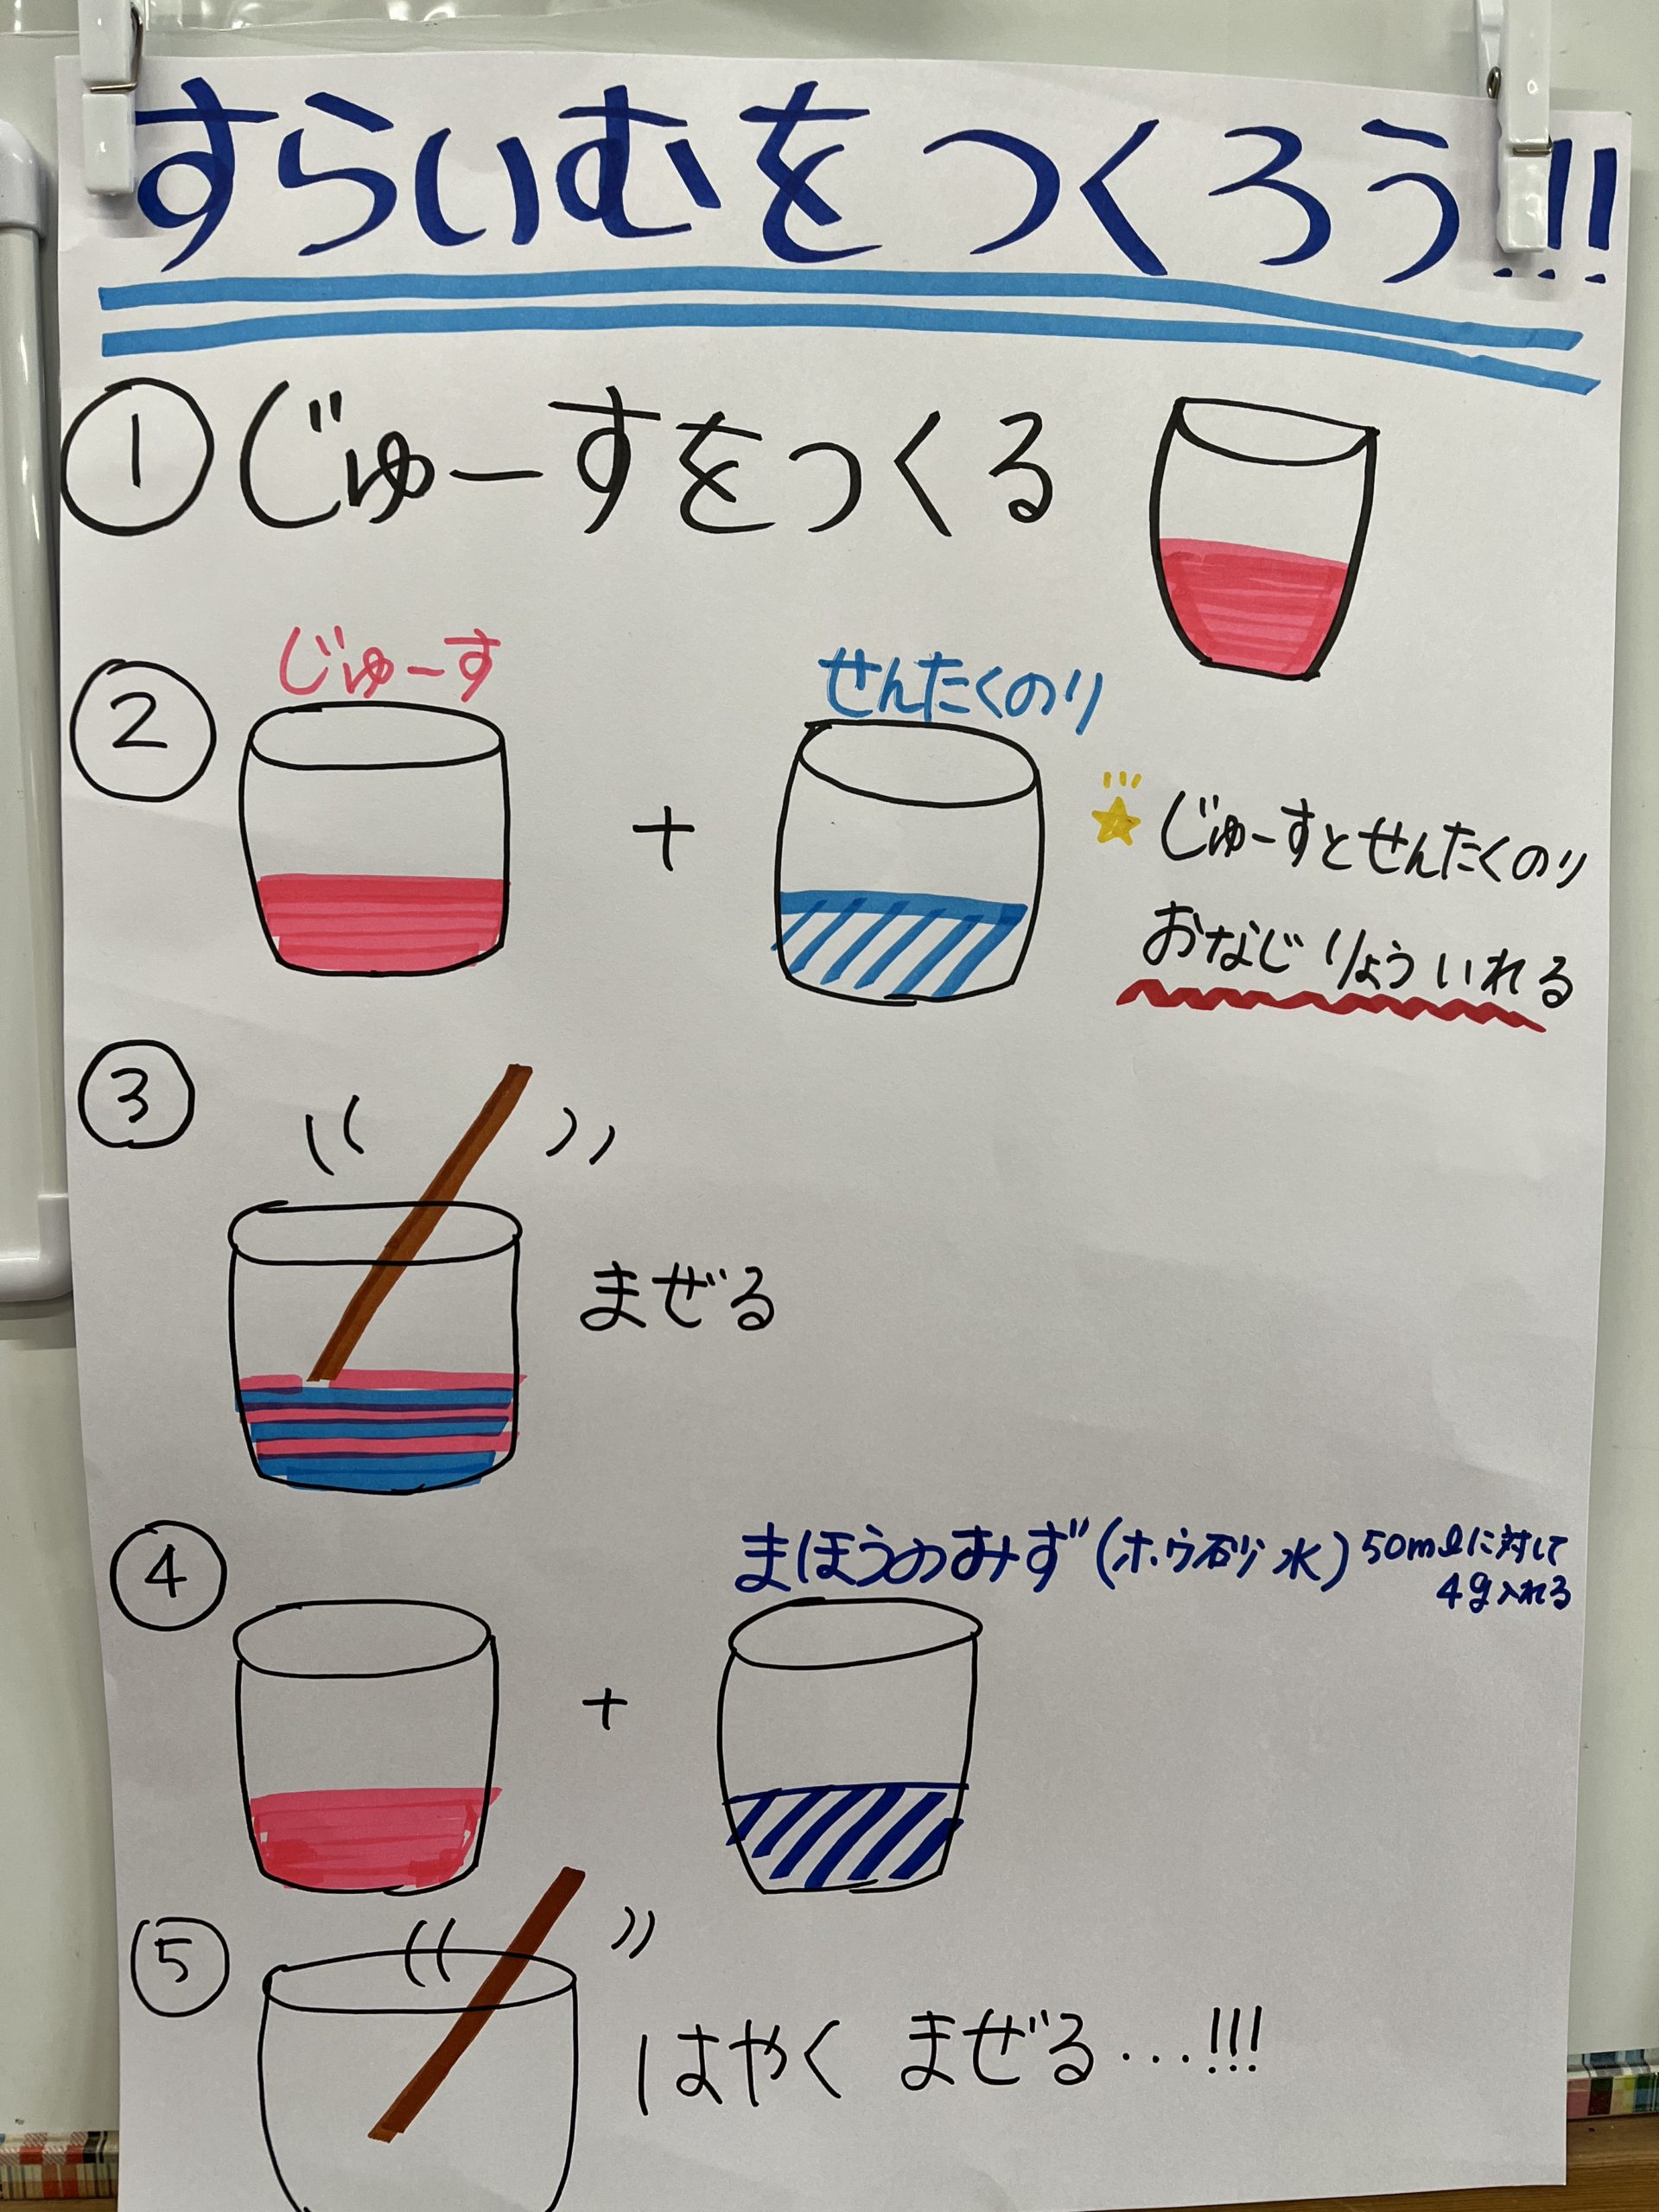 すらいむをつくろう!!!
① じゅーすをつくる
② じゅーす + せんたくのり
じゅーすとせんたくのり
おなじりょういれる
③ まぜる
④ + まほうのみず(ホウ砂水) 50mlに対して
4g入れる
⑤ はやく まぜる...!!!